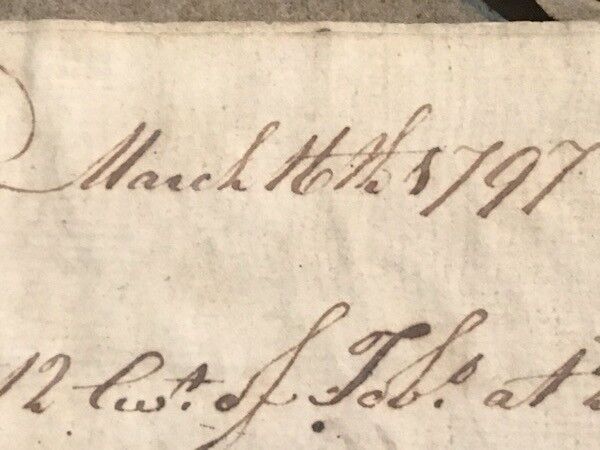 March 16th 1797
12 Cwt. of Tobo. at